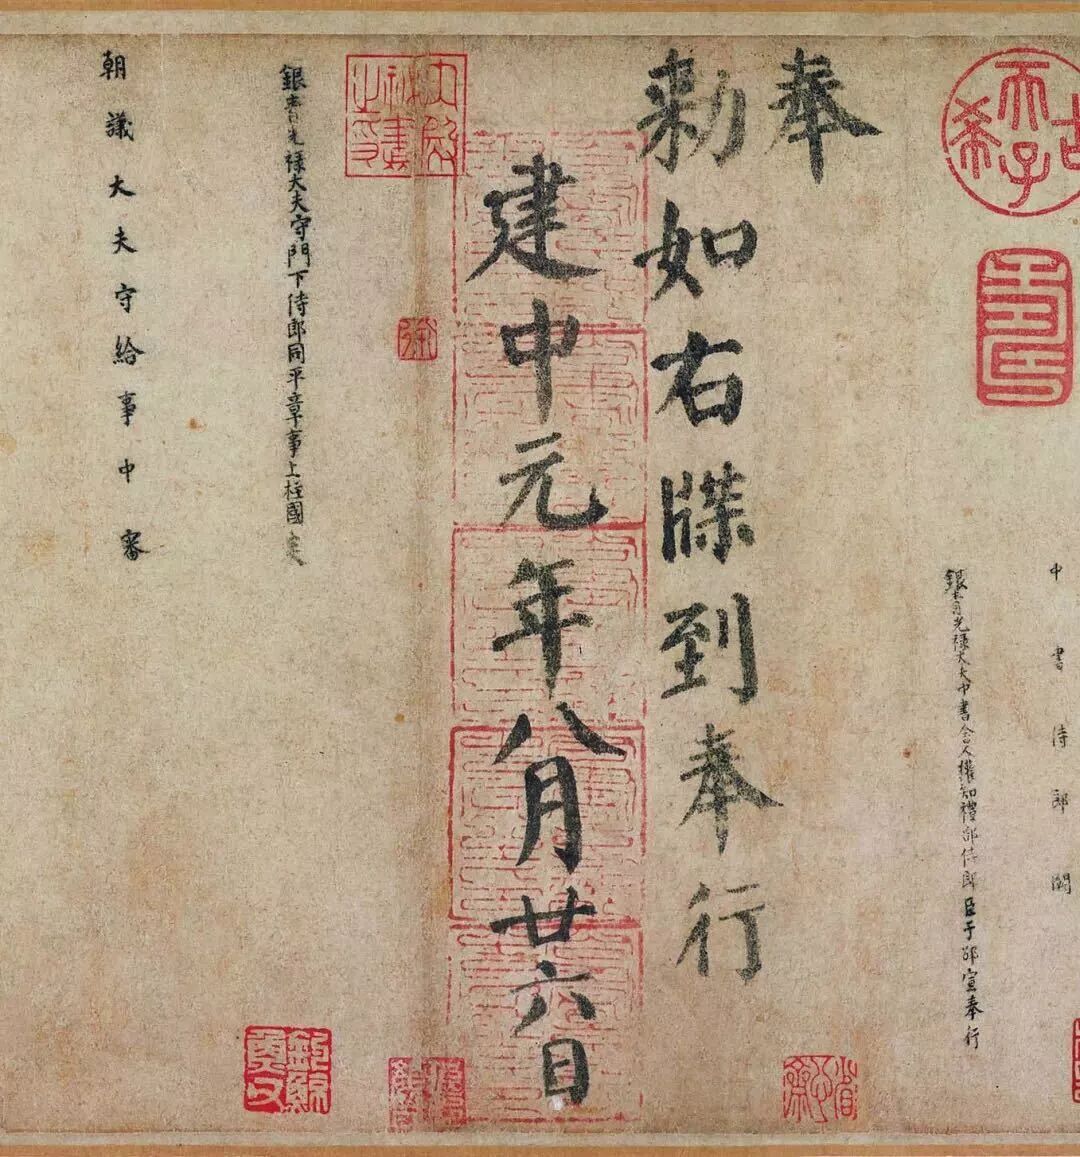 中書侍郎闕
銀青光祿大夫中書舍人權知禮部侍郎臣于邵宣奉行
奉
勑如右牒到奉行
建中元年八月廿六日
銀青光祿大夫守門下侍郎同平章事上柱國炎
朝議大夫守給事中審
古希天子